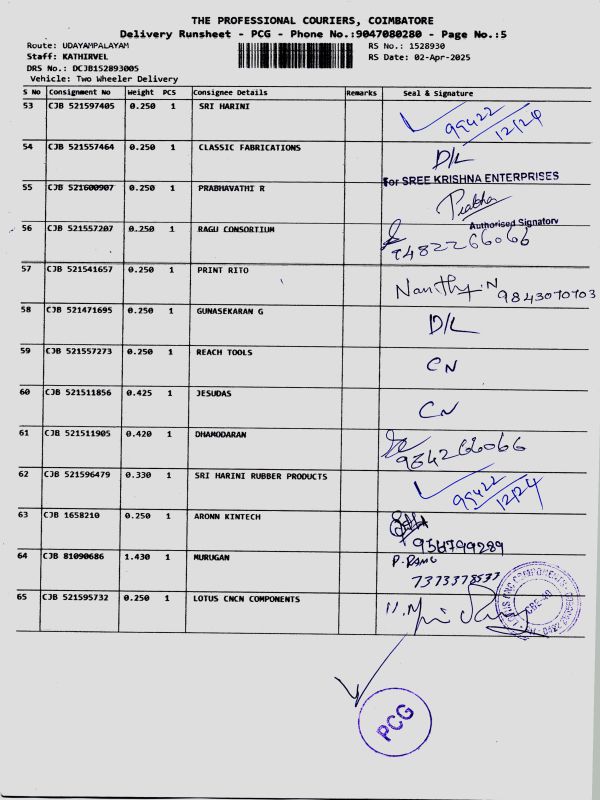 THE PROFESSIONAL COURIERS, COIMBATORE
Delivery Runsheet - PCG - Phone No.:9047080280 - Page No.:5
Route: UDAYAMPALAYAM RS No.: 1528930
Staff: KATHIRVEL RS Date: 02-Apr-2025
DRS No.: DCJB152893005
Vehicle: Two Wheeler Delivery
S No Consignment No Weight PCS Consignee Details Remarks Seal & Signature
53 CJB 521597405 0.250 1 SRI HARINI 99422 12124
54 CJB 521557464 0.250 1 CLASSIC FABRICATIONS D/L
for SREE KRISHNA ENTERPRISES
55 CJB 521600907 0.250 1 PRABHAVATHI R Prabha
Authorised Signatory
56 CJB 521557207 0.250 1 RAGU CONSORTIUM 9482266066
57 CJB 521541657 0.250 1 PRINT RITO Nanthy.N 9843070703
58 CJB 521471695 0.250 1 GUNASEKARAN G D/L
59 CJB 521557273 0.250 1 REACH TOOLS CN
60 CJB 521511856 0.425 1 JESUDAS CN
61 CJB 521511905 0.420 1 DHAMODARAN 984266066
62 CJB 521596479 0.330 1 SRI HARINI RUBBER PRODUCTS 99422 12124
63 CJB 1658210 0.250 1 ARONN KINTECH 956799289
64 CJB 81090686 1.430 1 MURUGAN P. RAMU
7373378537
65 CJB 521595732 0.250 1 LOTUS CNCN COMPONENTS
LOTUS CNC COMPONENTS
CBE-49
PCG